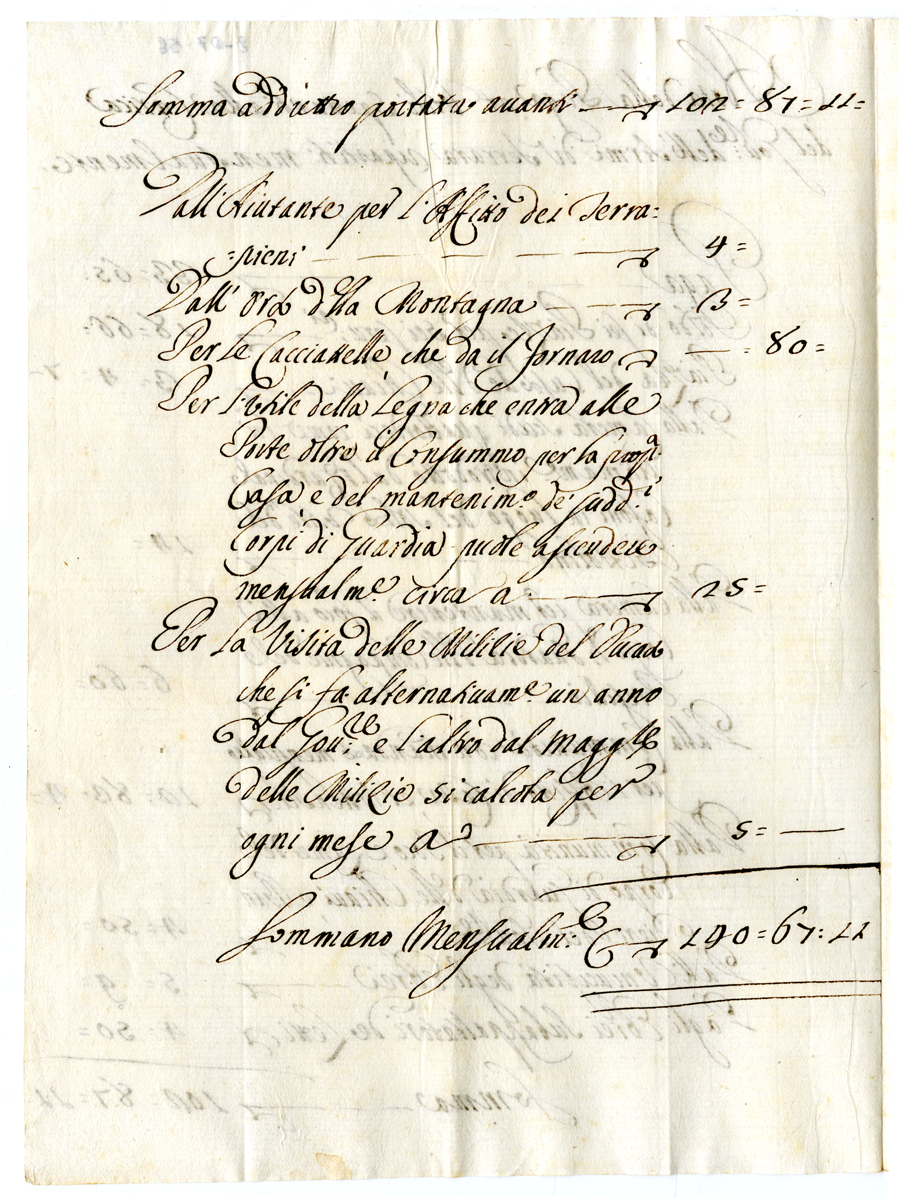 Somma addietro portata avanti 102 = 87 = 11 =
Dall'Aiutante per l'Affitto dei Terra=
=pieni 4 =
Dall' Orto d'lla Montagna 3 =
Per le Cacciatelle, che dà il Fornaro — = 80 =
Per l'utile della Legna che entra alle
Porte oltre il Consummo per la prop.a
Casa e del mantenim.o de' sudd.i
Corpi di Guardia puole ascendere
mensualm.e circa a 25 =
Per la Visita delle Milizie del Ducato
che si fà alternatiuam.e un anno
dal Gou.re e l'altro dal Magg.re
delle Milizie si calcola per
ogni mese a 5 = —
Sommano Mensualm.e 140 = 67 = 11